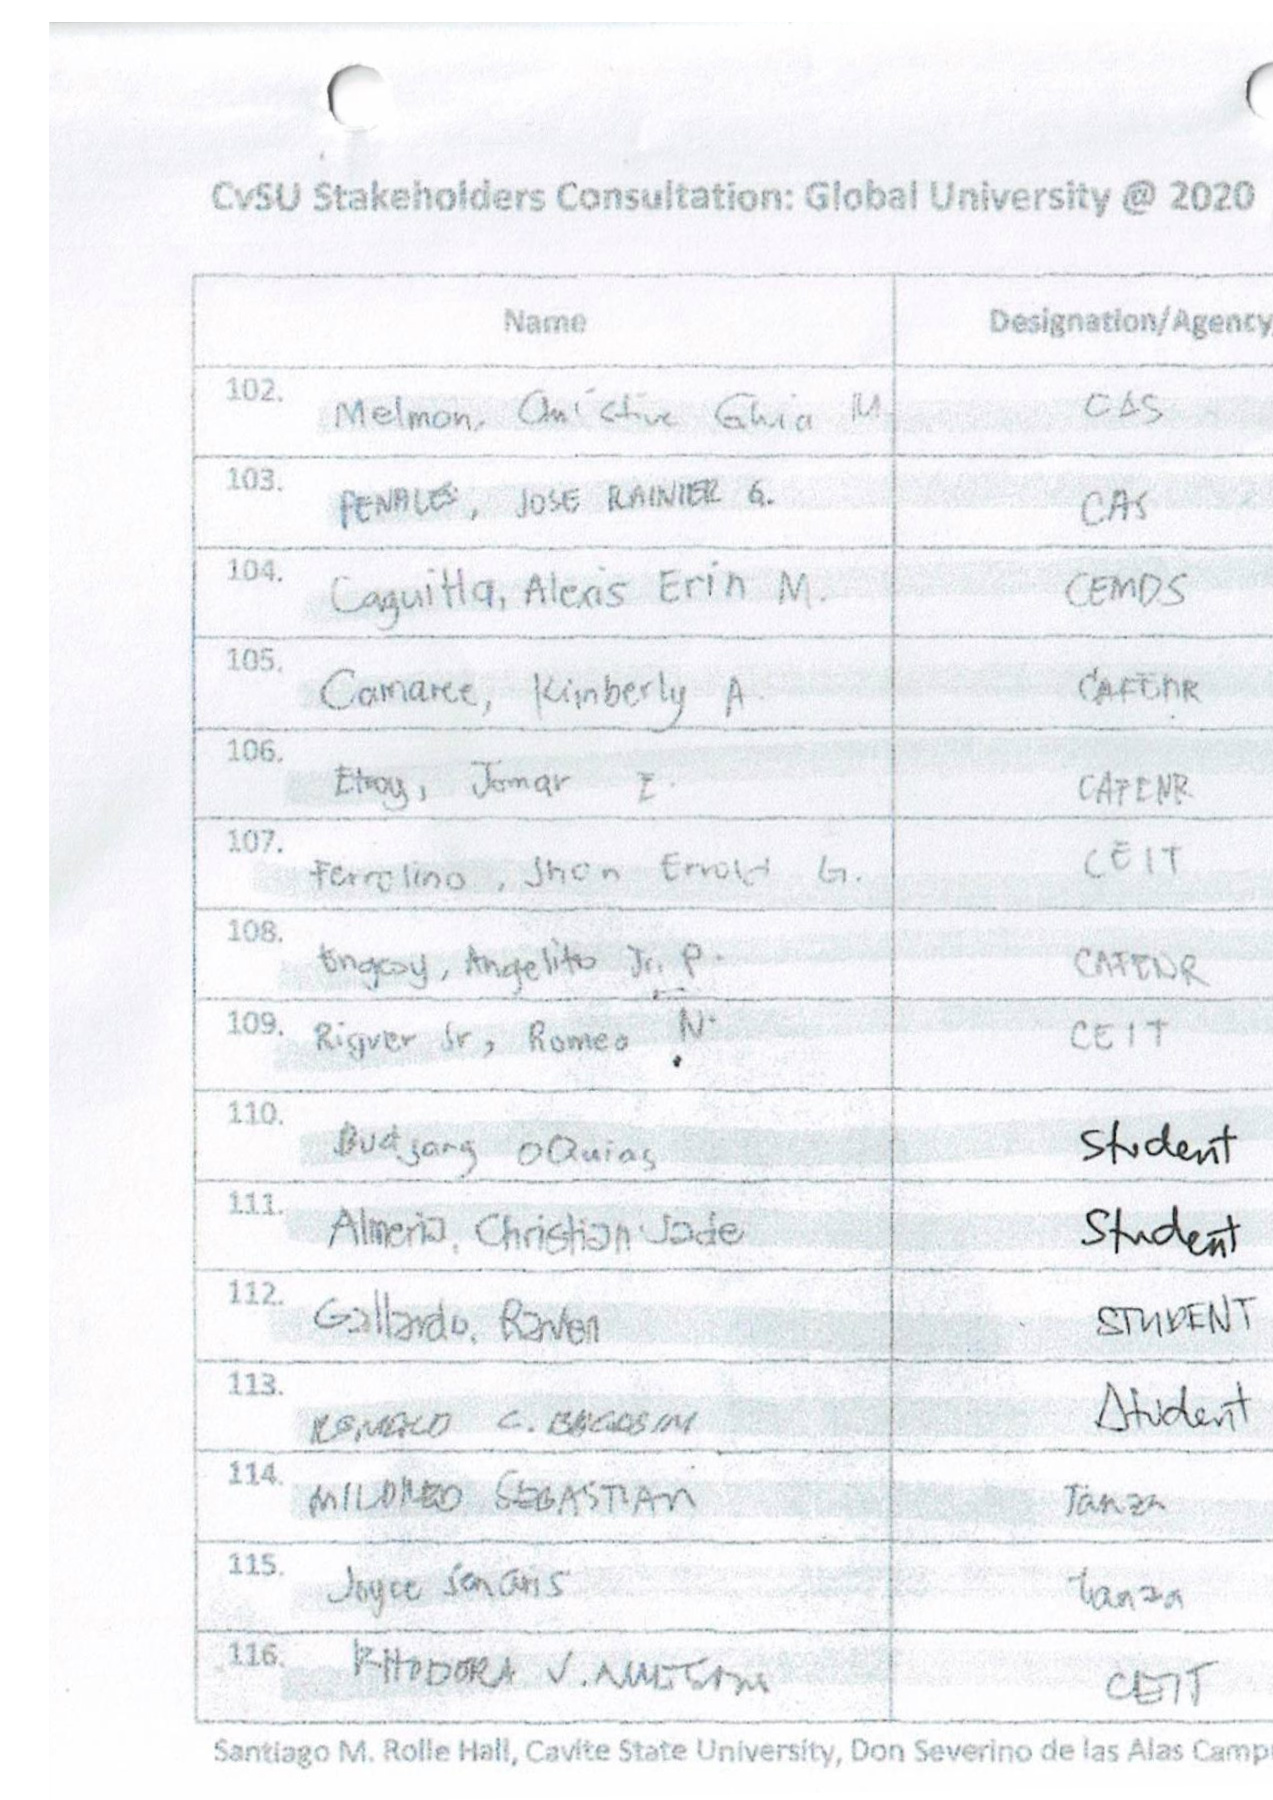 CvSU Stakeholders Consultation: Global University @ 2020
Name Designation/Agency
102. Melmon, Ghia M. CAS
103. PENALES, JOSE RAINIER G. CAS
104. Caguitla, Alexis Erin M. CEMDS
105. Camaree, Kimberly A. CAFENR
106. Jomar E. CAFENR
107. Ferrolino, Jhon Errold G. CEIT
108. Angelito Jr. P. CAFENR
109. Romeo N. CEIT
110. Student
111. Almeria, Christian Jade Student
112. Gallardo, Raven STUDENT
113. C. Student
114. MILDRED SEBASTIAN Tanza
115. Joyce Tanza
116. RHODORA V. CEIT
Santiago M. Rolle Hall, Cavite State University, Don Severino de las Alas